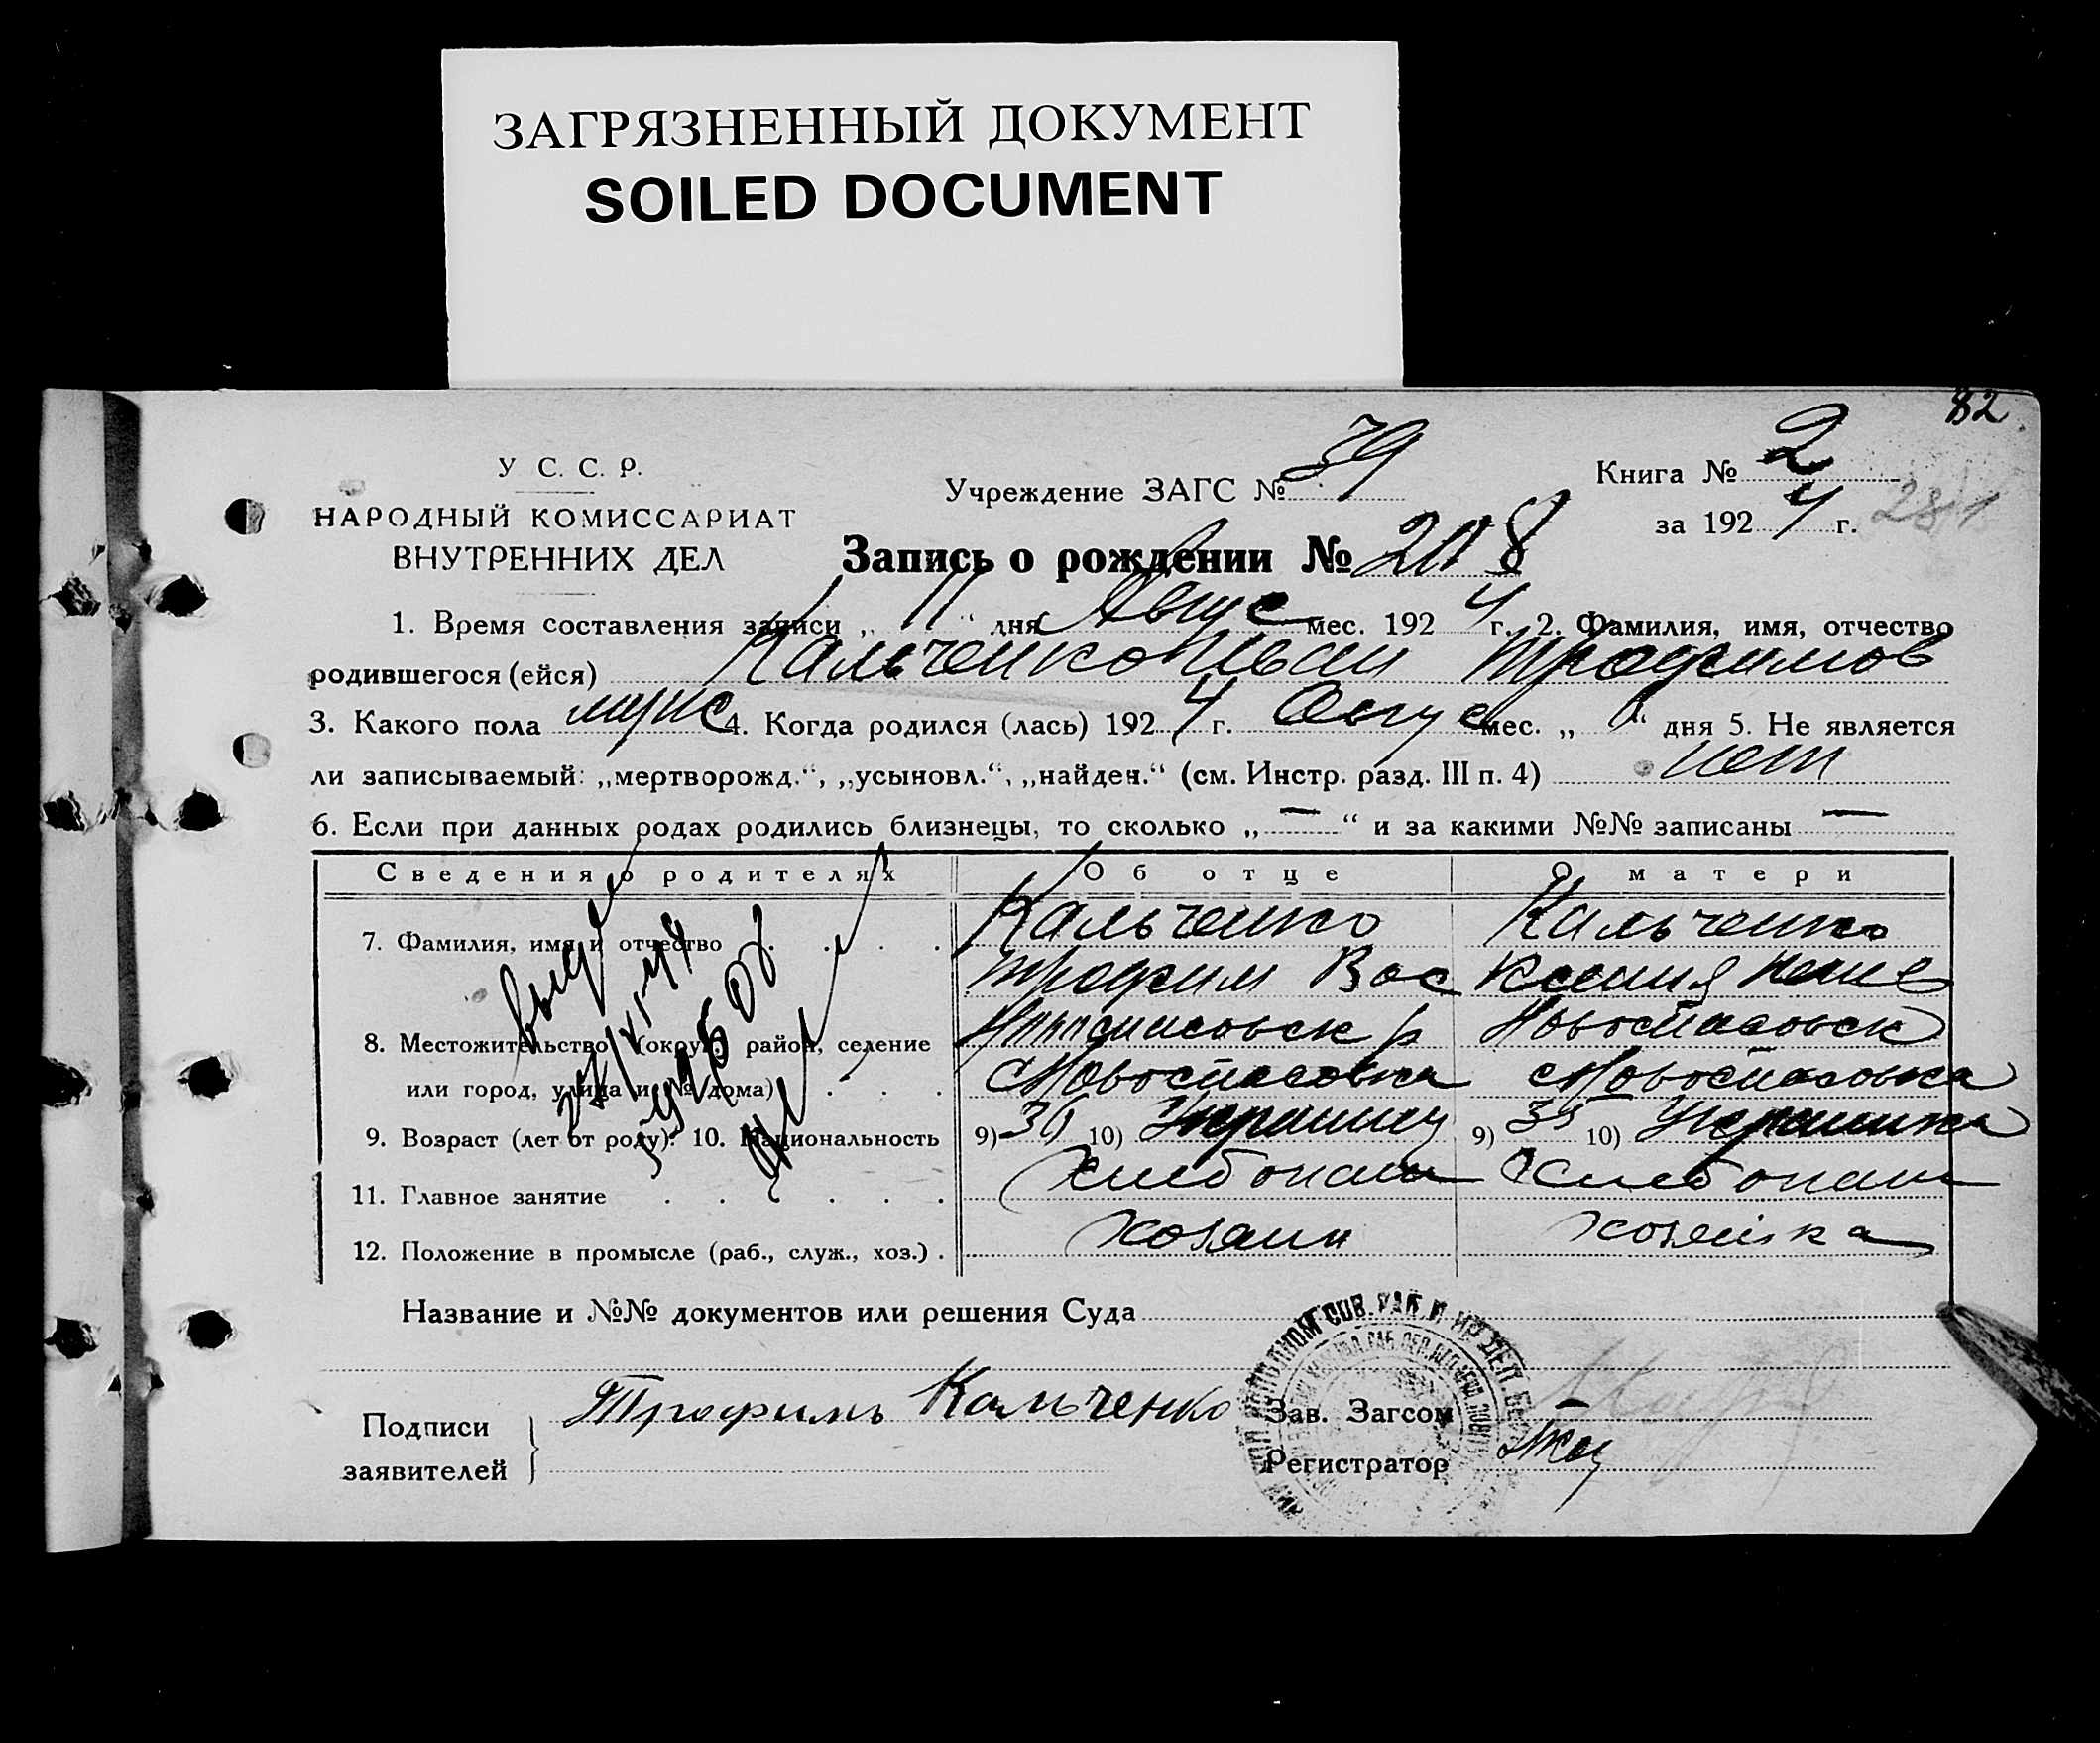 ЗАГРЯЗНЕННЫЙ ДОКУМЕНТ
SOILED DOCUMENT
82
У С. С. Р.
НАРОДНЫЙ КОМИССАРИАТ
ВНУТРЕННИХ ДЕЛ
Учреждение ЗАГС № 39
Книга № 2
за 1924 г. 281
Запись о рождении № 208
1. Время составления записи „ 11 “ дня Авгус мес. 1924 г. 2. Фамилия, имя, отчество
родившегося (ейся) Кальченко Иван Трофимов
3. Какого пола мужс 4. Когда родился (лась) 1924 г. Авгус мес. „ “ дня 5. Не является
ли записываемый: „мертворожд.“, „усыновл.“, „найден.“ (см. Инстр. разд. III п. 4) нет
6. Если при данных родах родились близнецы, то сколько „ — “ и за какими №№ записаны —
Сведения о родителях Об отце О матери
7. Фамилия, имя и отчество . . . . Кальченко Кальченко
Трофим Вас Ксения
8. Местожительство (округ, район, селение Новоспасовск р Новоспасовск
или город, улица и № дома) . . . с Новоспасовка с Новоспасовка
9. Возраст (лет от роду). 10. Национальность 9) 36 10) Украинец 9) 35 10) Украинка
11. Главное занятие . . . . . . Хлебопаш Хлебопаш
12. Положение в промысле (раб., служ., хоз.) . хозяин хозяйка
Название и №№ документов или решения Суда
Подписи
заявителей
Трофимъ Кальченко
Зав. Загсом
Регистратор